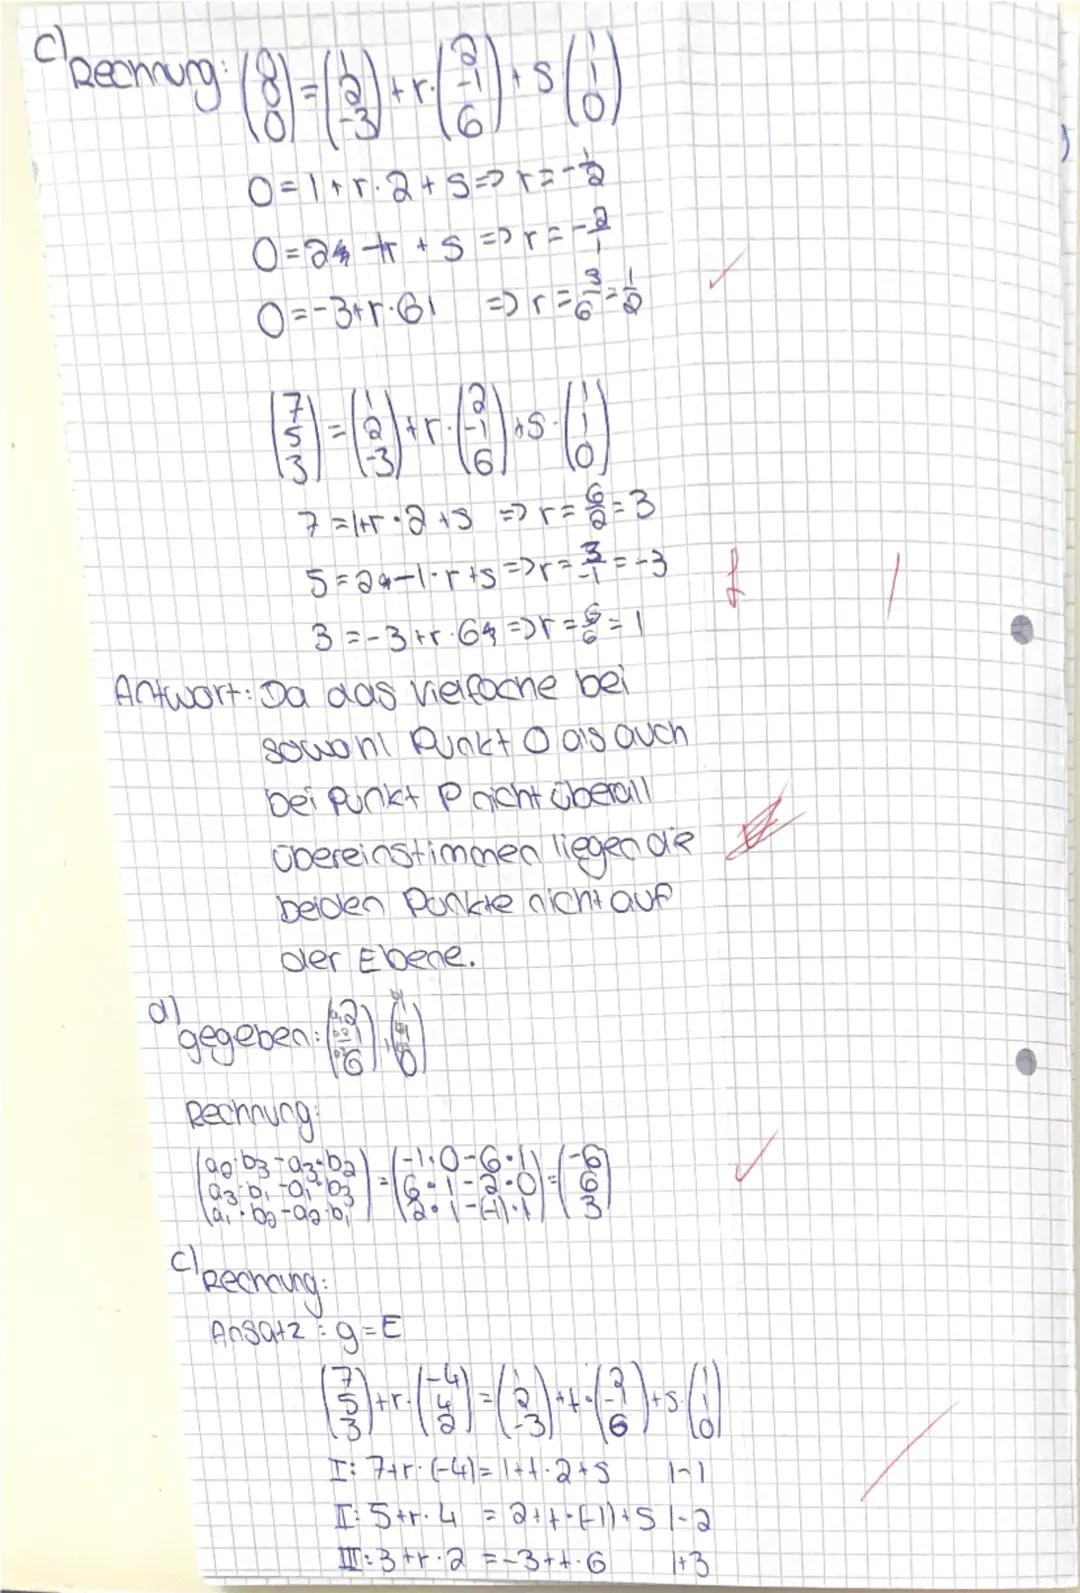 c) Rechnung: (0 0 0) = (1 2 -3) + r · (2 -1 6) + s (1 1 0)
0 = 1 + r · 2 + s => r = -1/2
0 = 2 - r + s => r = -2/1
0 = -3 + r · 6 => r = 3/6 = 1/2
(7 5 3) = (1 2 -3) + r · (2 -1 6) + s · (1 1 0)
7 = 1 + r · 2 + s => r = 6/2 = 3
5 = 2 - 1 · r + s => r = 3/-1 = -3
3 = -3 + r · 6 => r = 6/6 = 1
f
Antwort: Da das vielfache bei
sowohl Punkt O als auch
bei Punkt P nicht überall
übereinstimmen liegen die
beiden Punkte nicht auf
der Ebene.
d)
gegeben: (2 -1 6), (1 1 0)
Rechnung:
(a2·b3 - a3·b2 a3·b1 - a1·b3 a1·b2 - a2·b1) = (-1·0-6·1 6·1-2·0 2·1-(-1)·1) = (-6 6 3)
c) Rechnung:
Ansatz: g = E
(7 5 3) + r · (-4 4 2) = (1 2 -3) + t · (2 -1 6) + s · (1 1 0)
I: 7 + r · (-4) = 1 + t · 2 + s |-1
II: 5 + r · 4 = 2 + t · (-1) + s |-2
III: 3 + r · 2 = -3 + t · 6 |+3